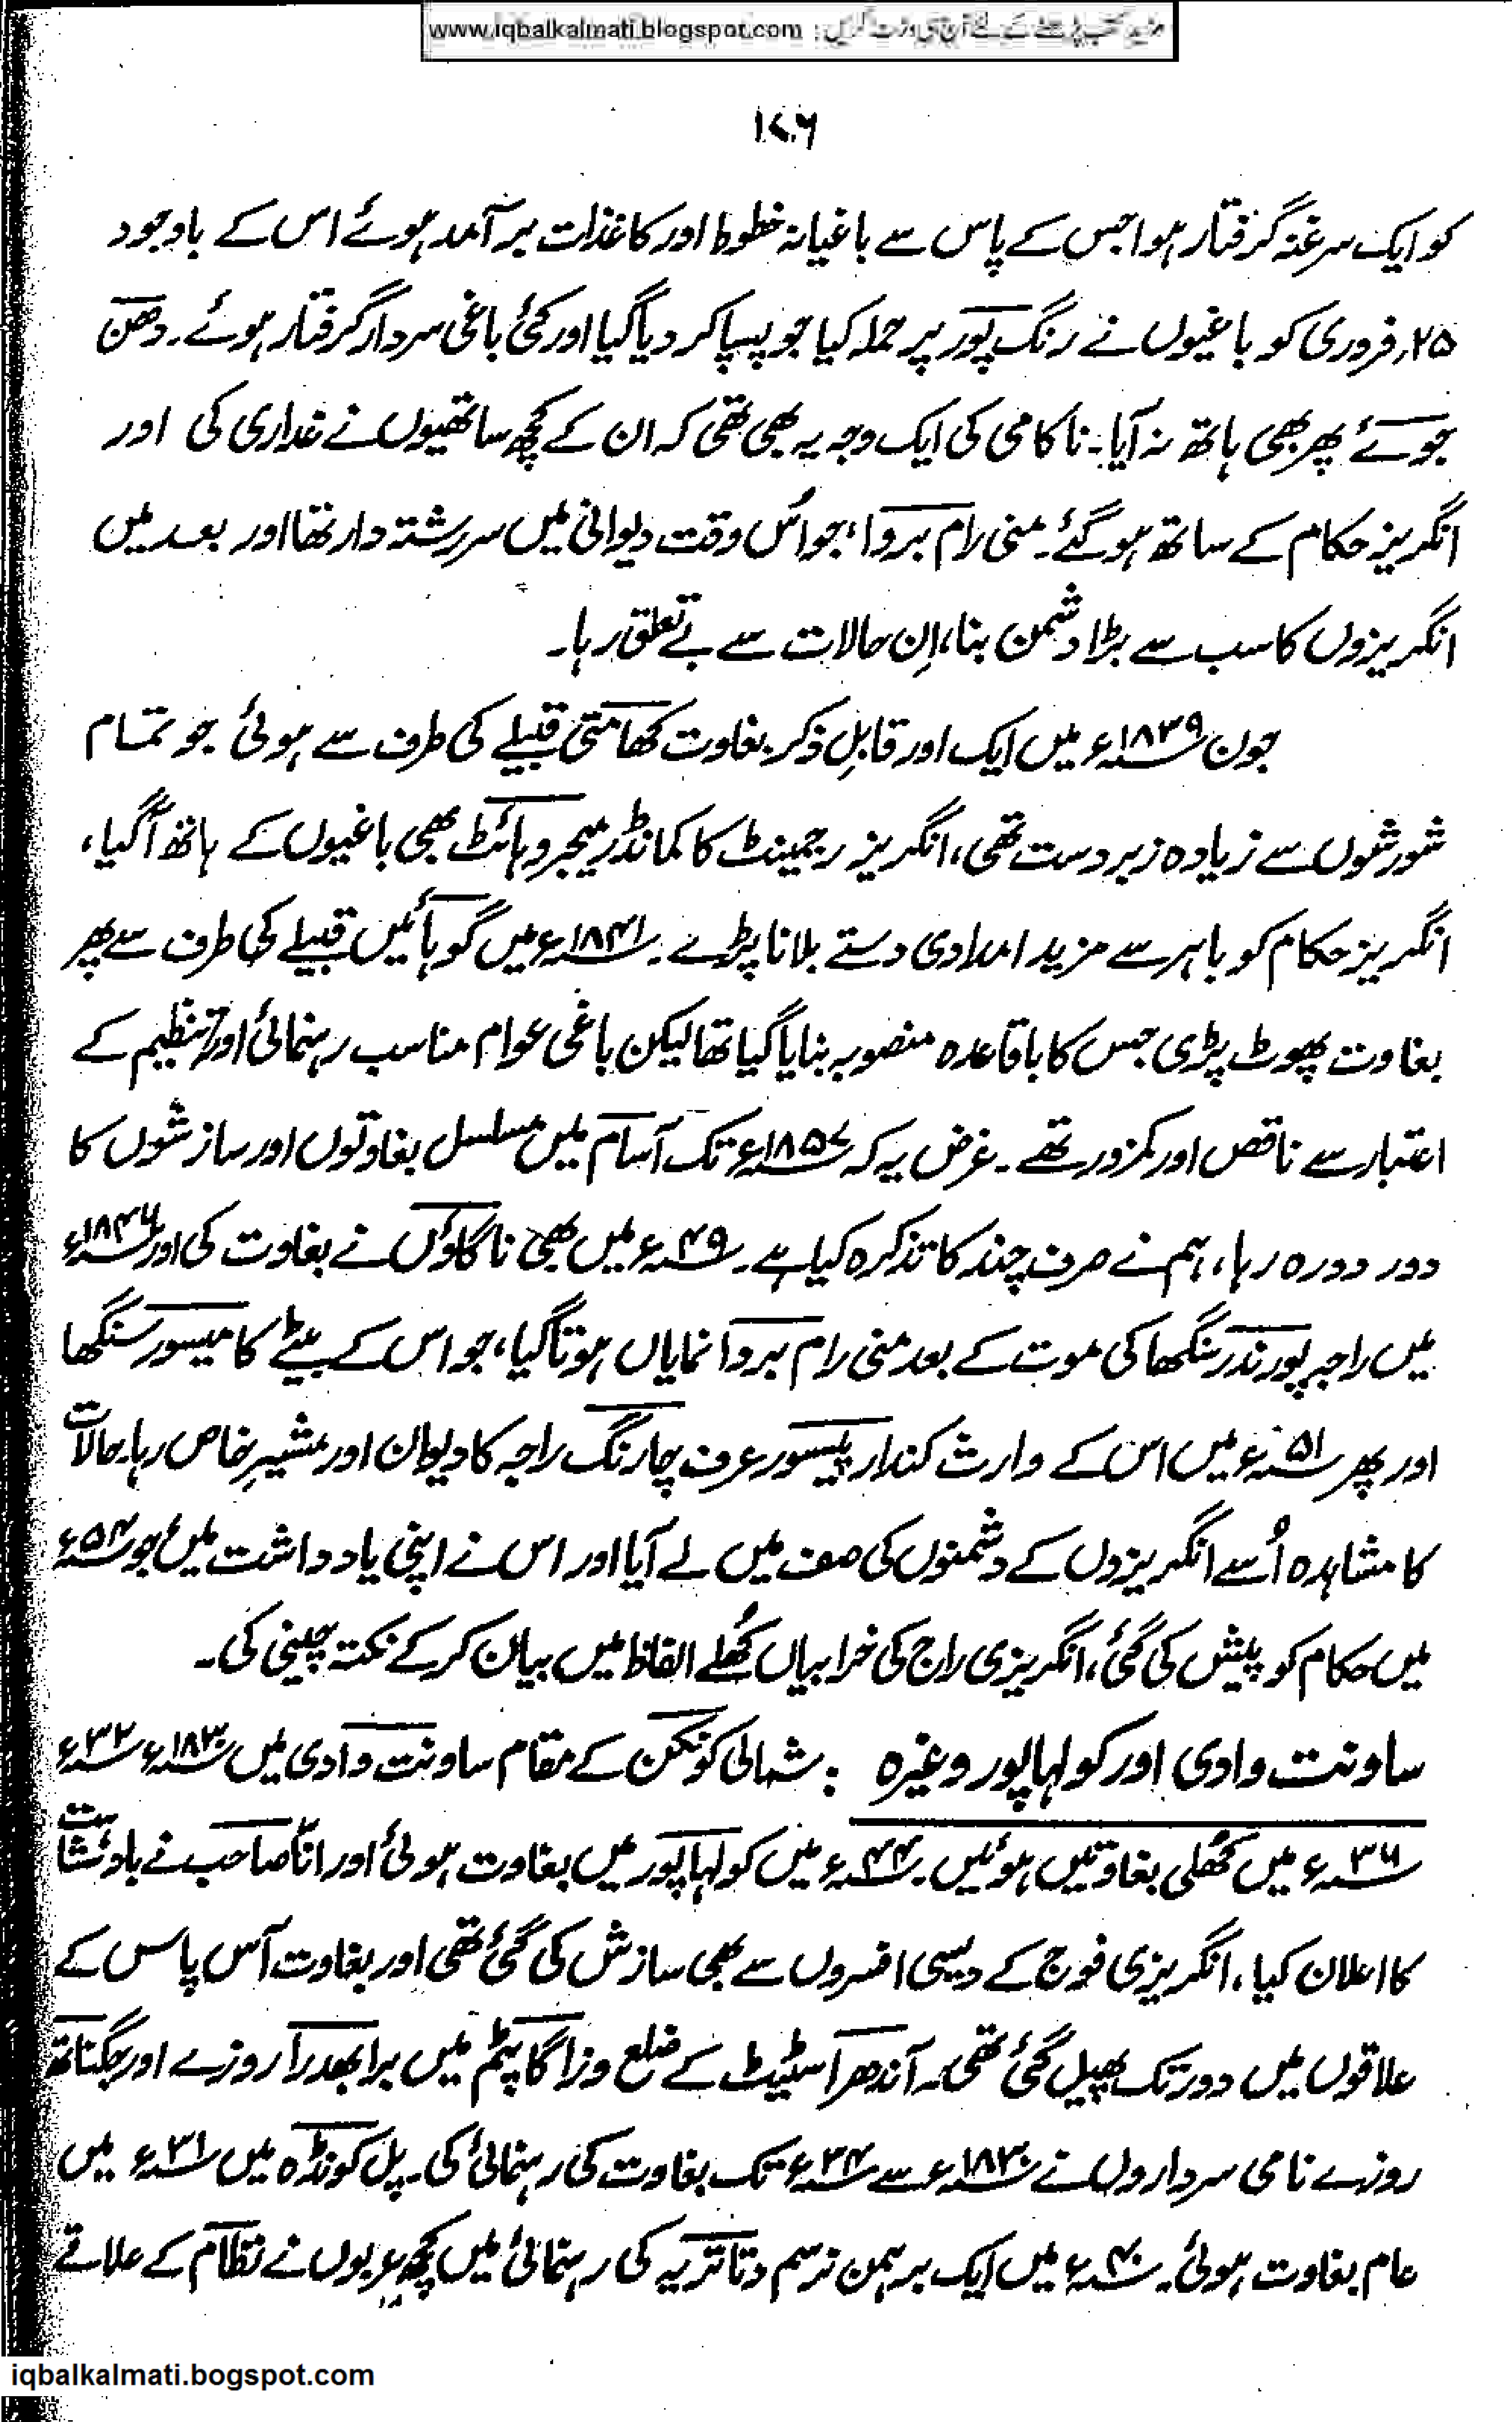 مزید کتب پڑھنے کے لئے آج ہی وزٹ کریں : www.iqbalkalmati.blogspot.com
۱۷۶
کو ایک سرغنہ گرفتار ہوا جس کے پاس سے باغیانہ خطوط اور کاغذات برآمد ہوئے اس کے باوجود
۲۵ر فروری کو باغیوں نے رنگ پور پر حملہ کیا جو پسپا کر دیا گیا اور کئی باغی سردار گرفتار ہوئے۔ دھن
جوئے پھر بھی ہاتھ نہ آیا۔ ناکامی کی ایک وجہ یہ بھی تھی کہ ان کے کچھ ساتھیوں نے غداری کی اور
انگریز حکام کے ساتھ ہو گئے۔ منی رام بروا، جو اُس وقت دیوانی میں سررشتہ دار تھا اور بعد میں
انگریزوں کا سب سے بڑا دشمن بنا، اِن حالات سے بے تعلق رہا۔
جون ۱۸۳۹ء میں ایک اور قابلِ ذکر بغاوت کھامتی قبیلے کی طرف سے ہوئی جو تمام
شورشوں سے زیادہ زبردست تھی، انگریز رجمینٹ کا کمانڈر میجر وہائٹ بھی باغیوں کے ہاتھ آگیا،
انگریز حکام کو باہر سے مزید امدادی دستے بلانا پڑے۔ ۱۸۴۱ء میں گوہائیں قبیلے کی طرف سے پھر
بغاوت پھوٹ پڑی جس کا باقاعدہ منصوبہ بنایا گیا تھا لیکن باغی عوام مناسب رہنمائی اور تنظیم کے
اعتبار سے ناقص اور کمزور تھے۔ غرض یہ کہ ۱۸۵۷ء تک آسام میں مسلسل بغاوتوں اور سازشوں کا
دور دورہ رہا، ہم نے صرف چند کا تذکرہ کیا ہے۔ ۴۹ء میں بھی ناگاؤں نے بغاوت کی اور ۱۸۴۶ء
میں راجہ پورندر سنگھا کی موت کے بعد منی رام بروا نمایاں ہوتا گیا، جو اس کے بیٹے کامیسور سنگھا
اور پھر ۵۱ء میں اس کے وارث کندارپیسور عرف چارنگ راجہ کا دیوان اور مشیرِ خاص رہا۔ حالات
کا مشاہدہ اُسے انگریزوں کے دشمنوں کی صف میں لے آیا اور اس نے اپنی یادداشت میں جو ۵۴ء
میں حکام کو پیش کی گئی، انگریزی راج کی خرابیاں کھُلے الفاظ میں بیان کر کے نکتہ چینی کی۔
ساونت وادی اور کولہاپور وغیرہ : شمالی کونکن کے مقام ساونت وادی میں ۱۸۳۰ء ۳۲ء
۳۶ء میں کھُلی بغاوتیں ہوئیں۔ ۴۴ء میں کولہاپور میں بغاوت ہوئی اور انّا صاحب نے بادشاہت
کا اعلان کیا، انگریزی فوج کے دیسی افسروں سے بھی سازش کی گئی تھی اور بغاوت آس پاس کے
علاقوں میں دور تک پھیل گئی تھی۔ آندھرا سٹیٹ کے ضلع وزاگاپٹم میں برابھدرا روزے اور جگناتھ
روزے نامی سرداروں نے ۱۸۳۰ء سے ۳۴ء تک بغاوت کی رہنمائی کی۔ پل کونڈہ میں ۳۱ء میں
عام بغاوت ہوئی۔ ۴۰ء میں ایک برہمن نرسم دتاتریہ کی رہنمائی میں کچھ عربوں نے نظام کے علاقے
iqbalkalmati.bogspot.com